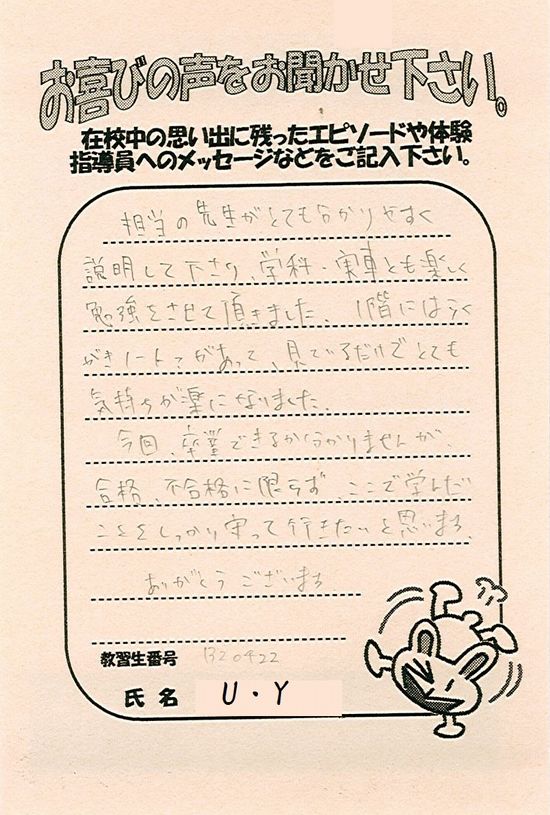 お喜びの声をお聞かせ下さい。
在校中の思い出に残ったエピソードや体験
指導員へのメッセージなどをご記入下さい。
担当の先生がとても分かりやすく
説明して下さり、学科・実車とも楽しく
勉強をさせて頂きました。1階にはらく
がきノートてがあって、見ているだけでとても
気持ちが楽になりました。
今回、卒業できるか分かりませんが、
合格、不合格に限らず、ここで学んだ
ことをしっかり守って行きたいと思います。
ありがとうございます
教習生番号 B20422
氏名 U・Y